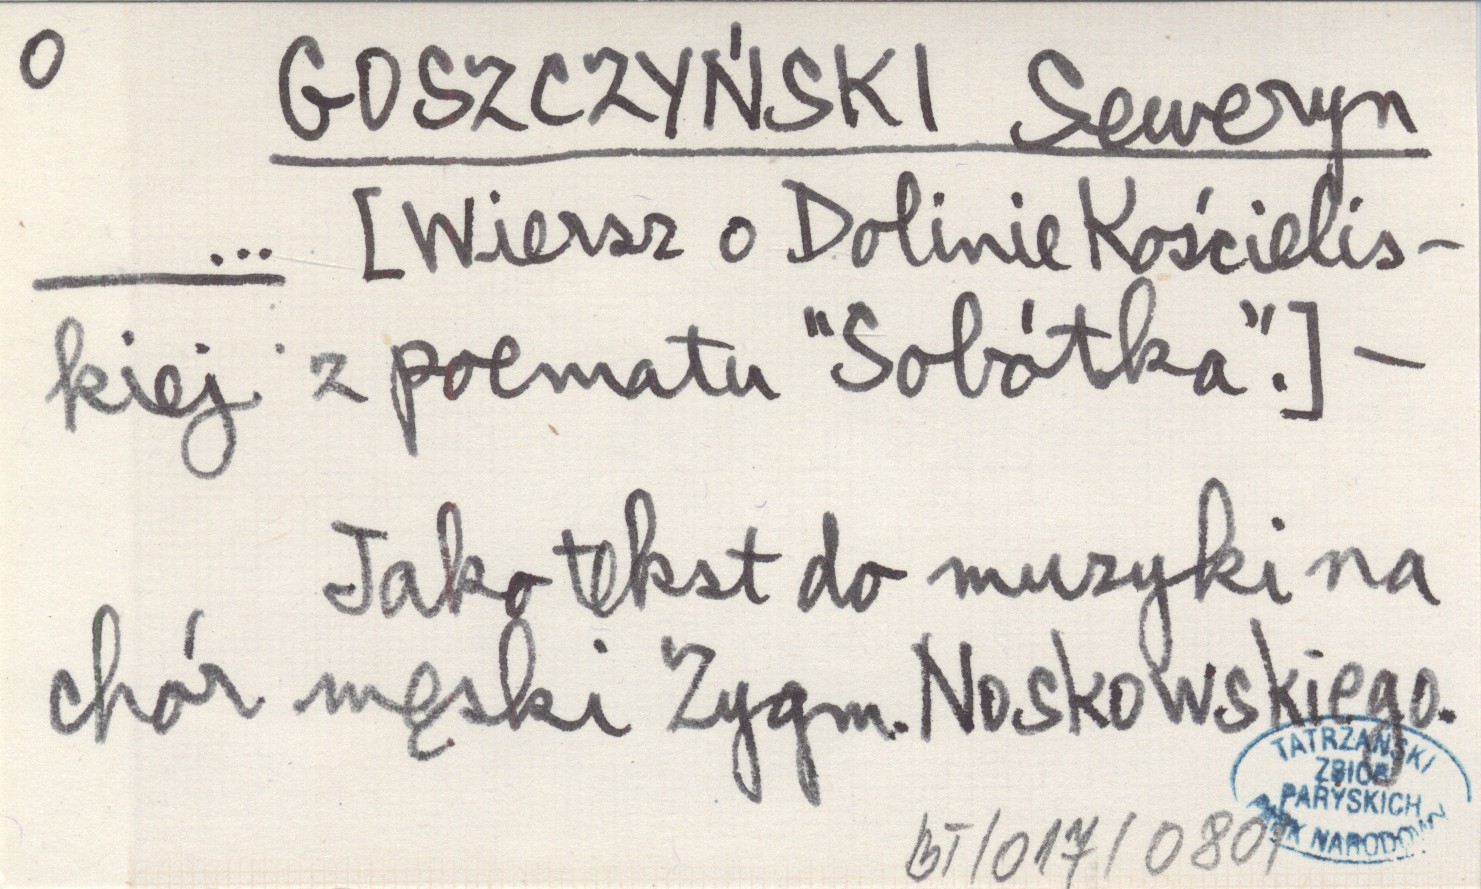 O GOSZCZYŃSKI Seweryn
... [Wiersz o Dolinie Kościelis-
kiej z poematu "Sobótka".] —
Jako tekst do muzyki na
chór męski Zygm. Noskowskiego.
TATRZAŃSKI
ZBIÓR
PARYSKICH
NARODOWY
BT/017/080